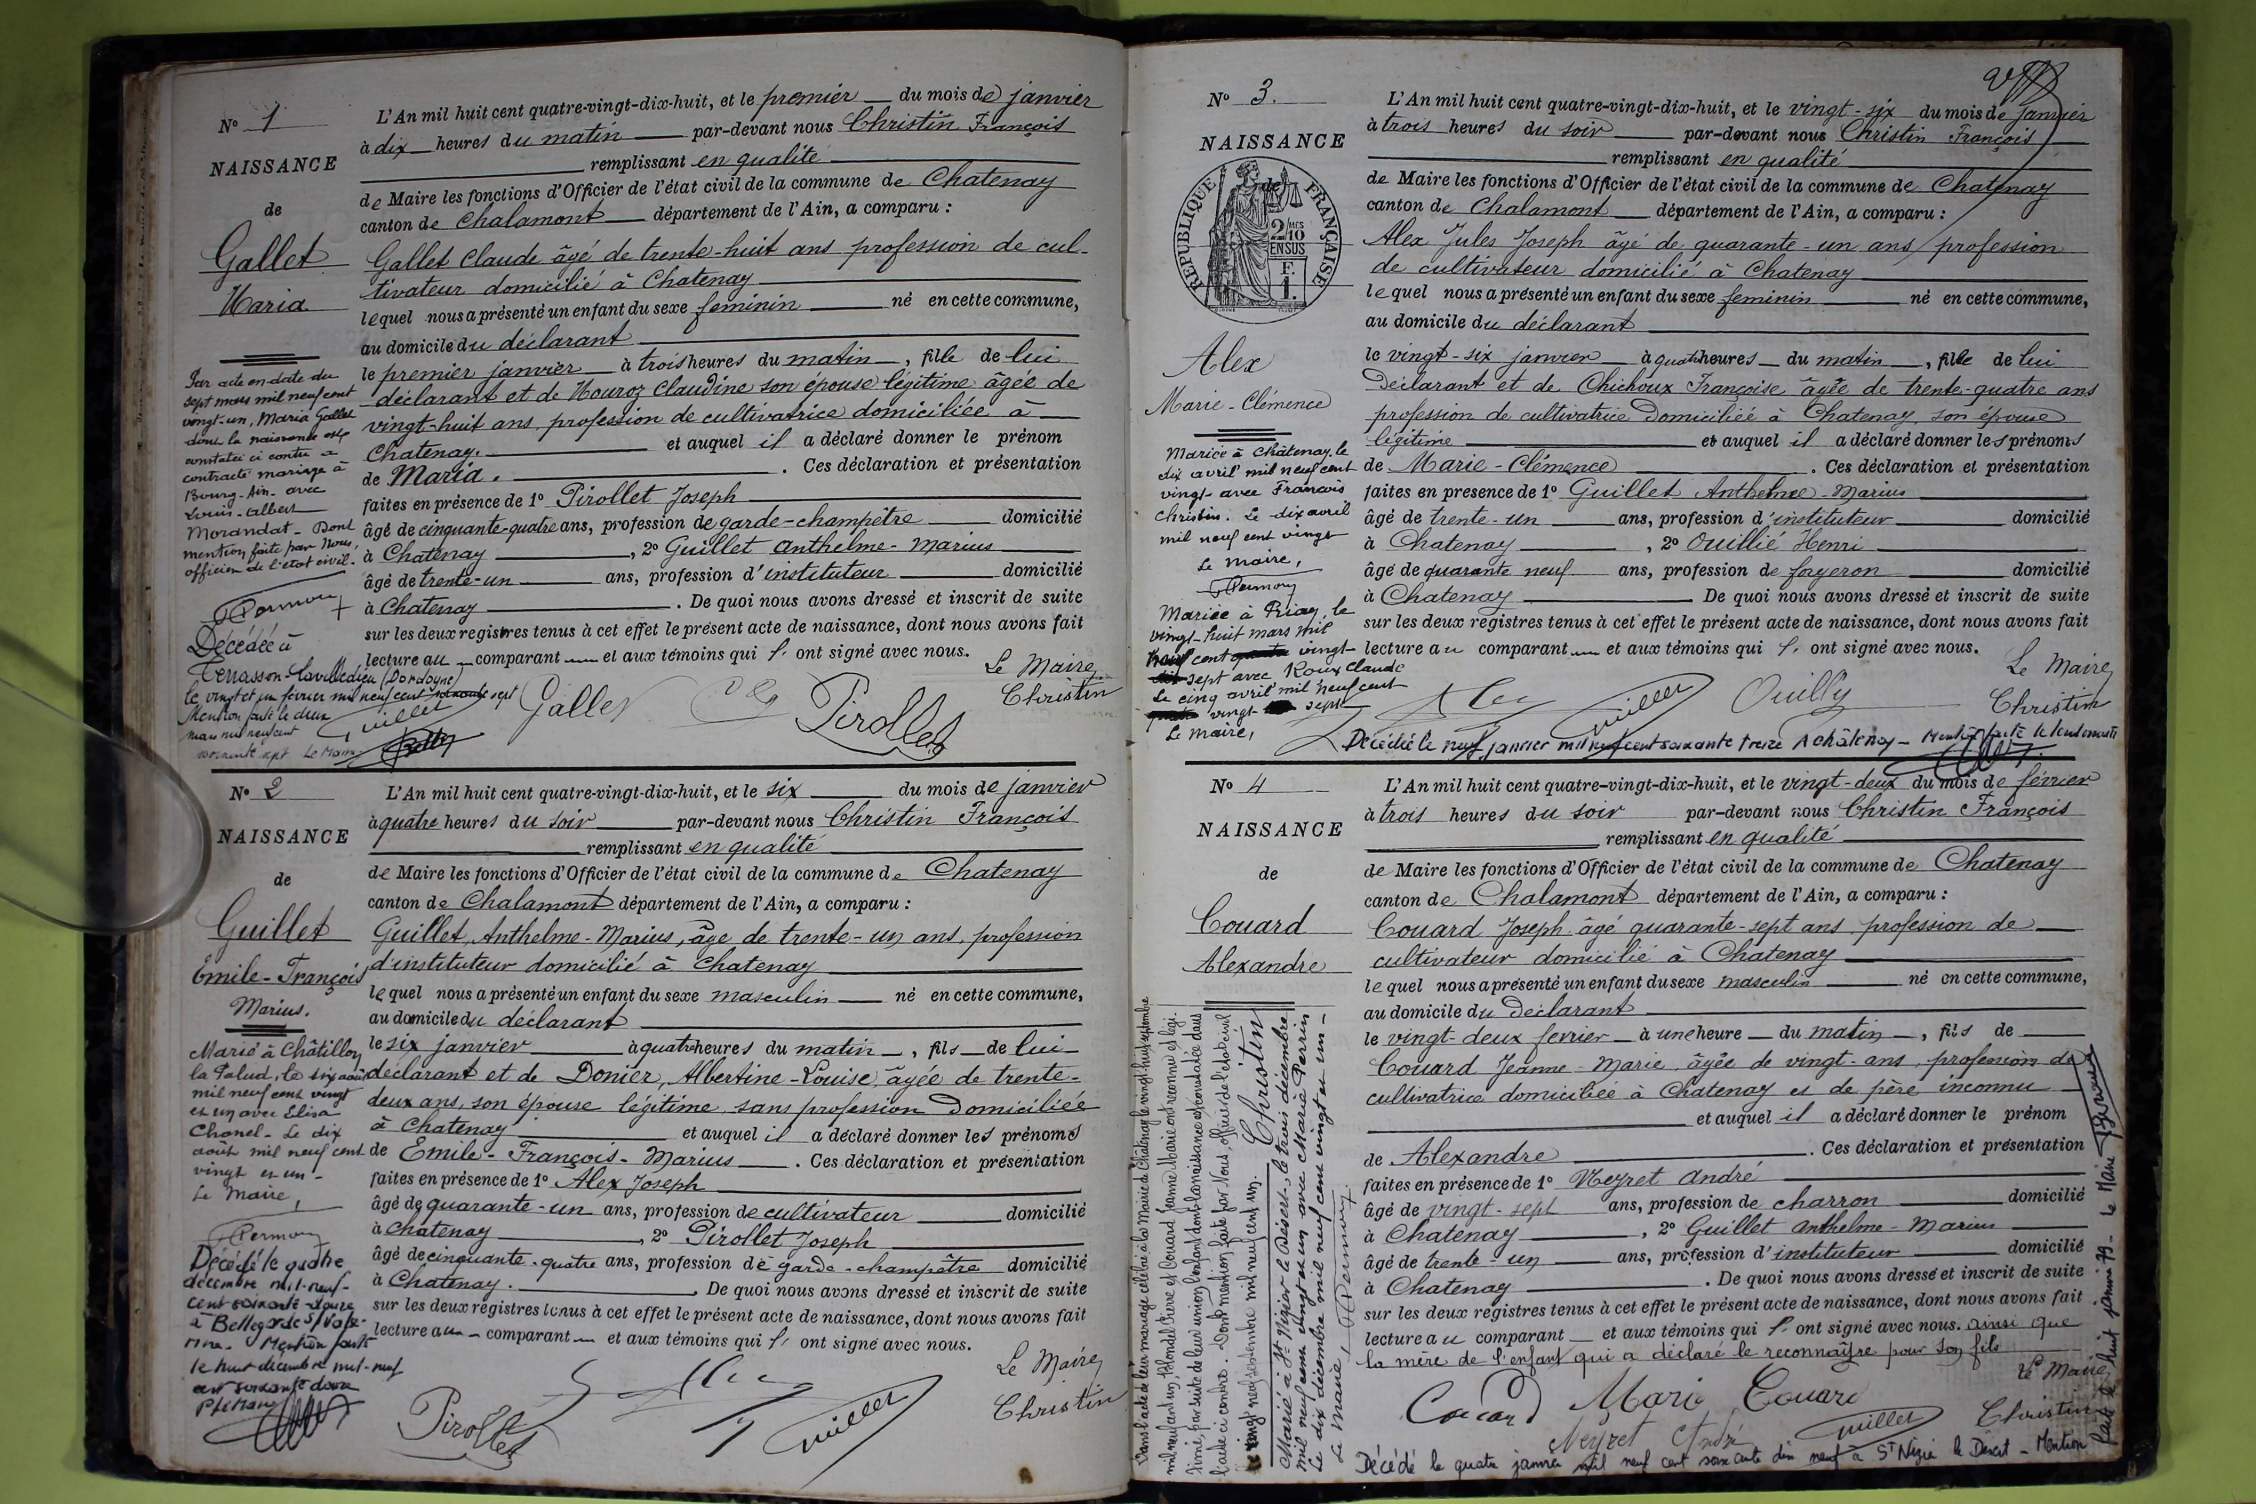 N° 1
NAISSANCE
de
Gallet
Maria
Par acte en date du
sept mars mil neuf cent
vingt-un, Maria Gallet
dont la naissance est
constatée ci contre a
contracté mariage à
Bourg-Ain- avec
Louis-Albert
Morandat - Dont
mention faite par Nous,
officier de l'état civil.
Décédée à
Terrasson-Lavilledieu (Dordogne)
le vingt et un février mil neuf cent soixante sept
Mention faite le deux
mars mil neuf cent
soixante sept Le Maire
L'An mil huit cent quatre-vingt-dix-huit, et le premier du mois de janvier
à dix heures du matin par-devant nous Christin François
remplissant en qualité
de Maire les fonctions d'Officier de l'état civil de la commune de Chatenay
canton de Chalamont département de l'Ain, a comparu :
Gallet Claude âgé de trente-huit ans profession de cul-
tivateur domicilié à Chatenay
lequel nous a présenté un enfant du sexe feminin né en cette commune,
au domicile du déclarant
le premier janvier à trois heures du matin, fille de lui
déclarant et de Mouroz Claudine son épouse légitime âgée de
vingt-huit ans, profession de cultivatrice domiciliée à
Chatenay. et auquel il a déclaré donner le prénom
de Maria. . Ces déclaration et présentation
faites en présence de 1° Pirollet Joseph
âgé de cinquante-quatre ans, profession de garde-champêtre domicilié
à Chatenay, 2° Guillet Anthelme-Marius
âgé de trente-un ans, profession d'instituteur domicilié
à Chatenay. De quoi nous avons dressé et inscrit de suite
sur les deux registres tenus à cet effet le présent acte de naissance, dont nous avons fait
lecture au comparant et aux témoins qui l' ont signé avec nous.
Le Maire
Christin
Gallet
Pirollet
Guillet
N° 2
NAISSANCE
de
Guillet
Emile-François
Marius.
Marié à Châtillon
la Palud, le six août
mil neuf cent vingt
et un avec Elisa
Chanel - Le dix
août mil neuf cent
vingt et un -
Le Maire,
Décédé le quatre
décembre mil-neuf-
cent soixante-douze
Mention faite
le huit décembre mil-neuf
cent soixante douze
L'An mil huit cent quatre-vingt-dix-huit, et le six du mois de janvier
à quatre heures du soir par-devant nous Christin François
remplissant en qualité
de Maire les fonctions d'Officier de l'état civil de la commune de Chatenay
canton de Chalamont département de l'Ain, a comparu :
Guillet, Anthelme-Marius, âge de trente-un ans, profession
d'instituteur domicilié à Chatenay
lequel nous a présenté un enfant du sexe masculin né en cette commune,
au domicile du déclarant
le six janvier à quatre heures du matin, fils de lui
déclarant et de Donier, Albertine-Louise, âgée de trente-
deux ans, son épouse légitime, sans profession Domiciliée
à Chatenay et auquel il a déclaré donner les prénoms
de Emile-François-Marius. Ces déclaration et présentation
faites en présence de 1° Alex Joseph
âgé de quarante-un ans, profession de cultivateur domicilié
à Chatenay, 2° Pirollet Joseph
âgé de cinquante-quatre ans, profession de garde-champêtre domicilié
à Chatenay. De quoi nous avons dressé et inscrit de suite
sur les deux registres tenus à cet effet le présent acte de naissance, dont nous avons fait
lecture au comparant et aux témoins qui l' ont signé avec nous.
Le Maire
Christin
Pirollet
Alex
Guillet
N° 3.
NAISSANCE
de
RÉPUBLIQUE FRANÇAISE
2/10 MES
EN SUS
F.
1.
Alex
Marie-Clémence
Mariée à Châtenay, le
dix avril mil neuf cent
vingt avec François
Christin. Le dix avril
mil neuf cent vingt
Le Maire,
Mariée à Priay, le
vingt-huit mars mil
neuf cent vingt-
sept avec Roux Claude
Le cinq avril mil neuf cent
vingt sept
Le Maire,
L'An mil huit cent quatre-vingt-dix-huit, et le vingt-six du mois de janvier
à trois heures du soir par-devant nous Christin François
remplissant en qualité
de Maire les fonctions d'Officier de l'état civil de la commune de Chatenay
canton de Chalamont département de l'Ain, a comparu :
Alex Jules Joseph âgé de quarante-un ans, profession
de cultivateur domicilié à Chatenay
lequel nous a présenté un enfant du sexe feminin né en cette commune,
au domicile du déclarant
le vingt-six janvier à quatre heures du matin, fille de lui
Déclarant et de Chichoux Françoise âgée de trente-quatre ans
profession de cultivatrice Domiciliée à Chatenay, son épouse
légitime et auquel il a déclaré donner les prénoms
de Marie-Clémence. Ces déclaration et présentation
faites en presence de 1° Guillet Anthelme-Marius
âgé de trente-un ans, profession d'instituteur domicilié
à Chatenay, 2° Ouillié Henri
âgé de quarante neuf ans, profession de forgeron domicilié
à Chatenay De quoi nous avons dressé et inscrit de suite
sur les deux registres tenus à cet effet le présent acte de naissance, dont nous avons fait
lecture au comparant et aux témoins qui l' ont signé avec nous.
Le Maire
Christin
Alex
Guillet
Ouilly
Décédée le neuf janvier mil neuf cent soixante treize à Châtenay - Mention faite le
N° 4
NAISSANCE
de
Couard
Alexandre
Dans l'acte de leur mariage célébré à la Mairie de Châtenay le vingt-huit septembre
mil neuf cent un, Blondel Pierre et Couard Jeanne Marie ont reconnu et légi-
timé par suite de leur union l'enfant dont la naissance est constatée dans
l'acte ci contre. Dont mention faite par Nous, officier de l'état civil
le vingt neuf septembre mil neuf cent un.
Christin
Marié à St Nizier le Désert, le trois décembre
mil neuf cent vingt et un avec Marie Perrin
Le dix décembre mil neuf cent vingt et un -
Le Maire,
L'An mil huit cent quatre-vingt-dix-huit, et le vingt-deux du mois de février
à trois heures du soir par-devant nous Christin François
remplissant en qualité
de Maire les fonctions d'Officier de l'état civil de la commune de Chatenay
canton de Chalamont département de l'Ain, a comparu :
Couard Joseph âgé quarante-sept ans profession de
cultivateur domicilié à Chatenay
lequel nous a présenté un enfant du sexe masculin né en cette commune,
au domicile du Déclarant
le vingt-deux fevrier à une heure du matin, fils de
Couard Jeanne-Marie, âgée de vingt-ans, profession de
cultivatrice domiciliée à Chatenay et de père inconnu
et auquel il a déclaré donner le prénom
de Alexandre. Ces déclaration et présentation
faites en présence de 1° Neyret André
âgé de vingt-sept ans, profession de charron domicilié
à Chatenay, 2° Guillet Anthelme-Marius
âgé de trente-un ans, profession d'instituteur domicilié
à Chatenay. De quoi nous avons dressé et inscrit de suite
sur les deux registres tenus à cet effet le présent acte de naissance, dont nous avons fait
lecture au comparant et aux témoins qui l' ont signé avec nous. ainsi que
la mère de l'enfant qui a déclaré le reconnaître pour son fils
Le Maire
Christin
Couard
Marie Couard
Neyret André
Guillet
Décédé le quatre janvier mil neuf cent soixante dix neuf à St Nizier le Désert - Mention
faite le huit janvier 79 - Le Maire